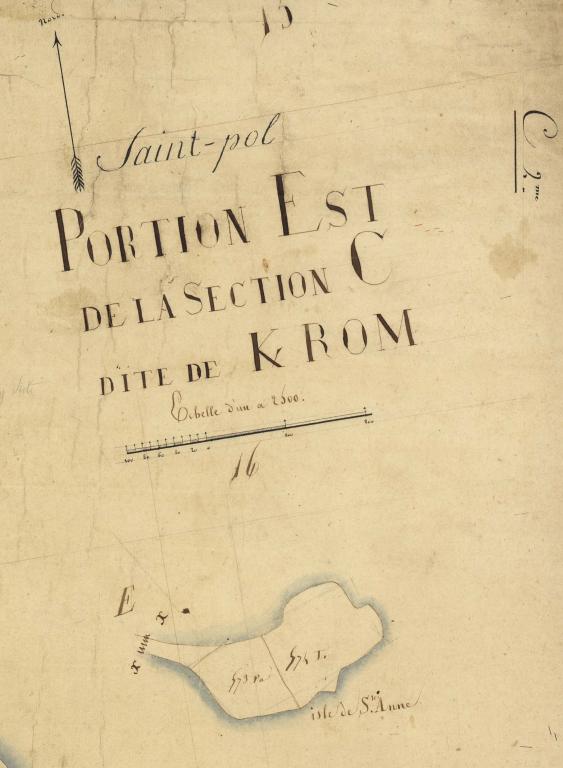 Nord.
15
Saint-pol
C 2.me
PORTION EST
DE LA SECTION C
DITE DE K ROM
Echelle d'un a 2500.
100 80 60 40 20 0 100 200
16
E
X
X
573 Pa
574 T.
isle de Ste. Anne